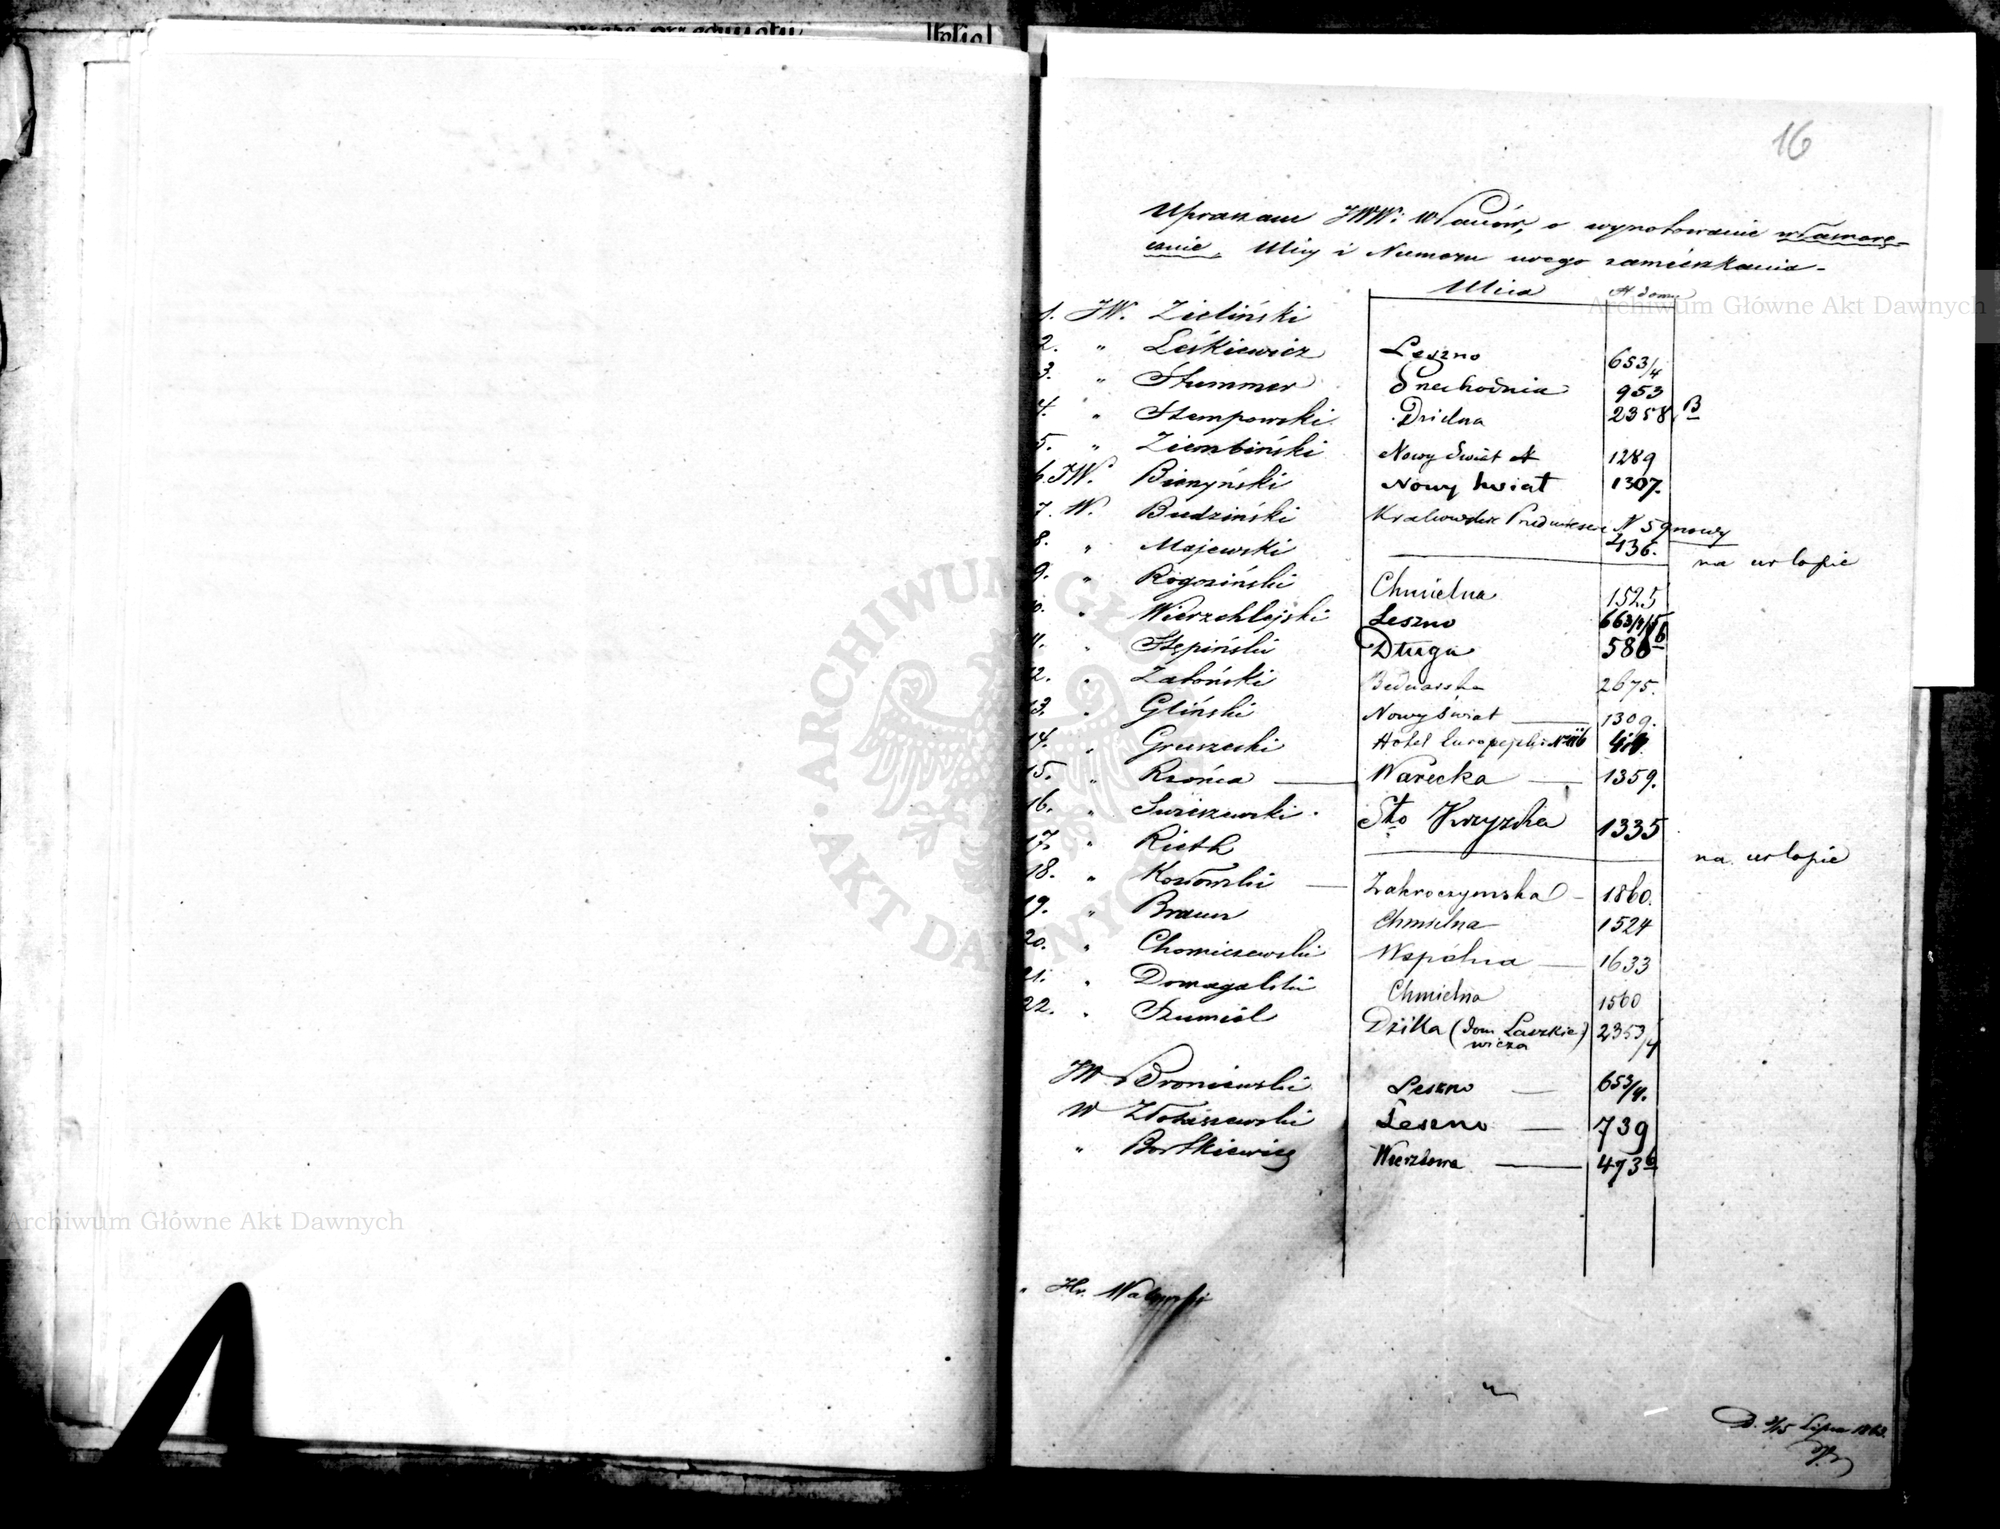 16
Upraszam JWW: W Panów, o wynotowanie własnorę-
cznie, Ulicy i Numeru swego zamieszkania.
Ulica N. domu
1. JW. Zieliński
2. " Leśkiewicz Leszno 653/4
3. " Stummer Przechodnia 953
4. " Stempowski Dzielna 2358 B
5. " Ziembiński Nowy Świat N 1289
6. JW. Bieńyński Nowy Świat 1307.
7. W. Budziński Krakowskie Przedmieście N 59 nowy
436.
8. " Majewski na urlopie
9. " Rogoziński Chmielna 1525
10. " Wierzchlejski Leszno 663/4/5
11. " Stępiński Długa 586 b
12. " Zaboński Bednarska 2675.
13. " Gliński Nowy Świat 1309.
14. " Gruszecki Hotel Europejski
15. " Rzońca Warecka 1359.
16. " Swieszewski Sto Krzyzka 1335
17. " Rieth na urlopie
18. " Kozłowski Zakroczymska 1860.
19. " Braun Chmielna 1524
20. " Chomiczewski Wspólna 1633
21. " Domagalski Chmielna 1560
22. " Szumiel Dzika (dom Laszkie- 2353/4
wicza)
JW Broniewski Leszno 653/4.
W Złotaszewski Leszno 739
" Bortkiewicz Wierzbowa 473 b
" Hr. Walewski
D. 3/15 Lipca 1863.
Archiwum Główne Akt Dawnych
Archiwum Główne Akt Dawnych
ARCHIWUM GŁÓWNE AKT DAWNYCH